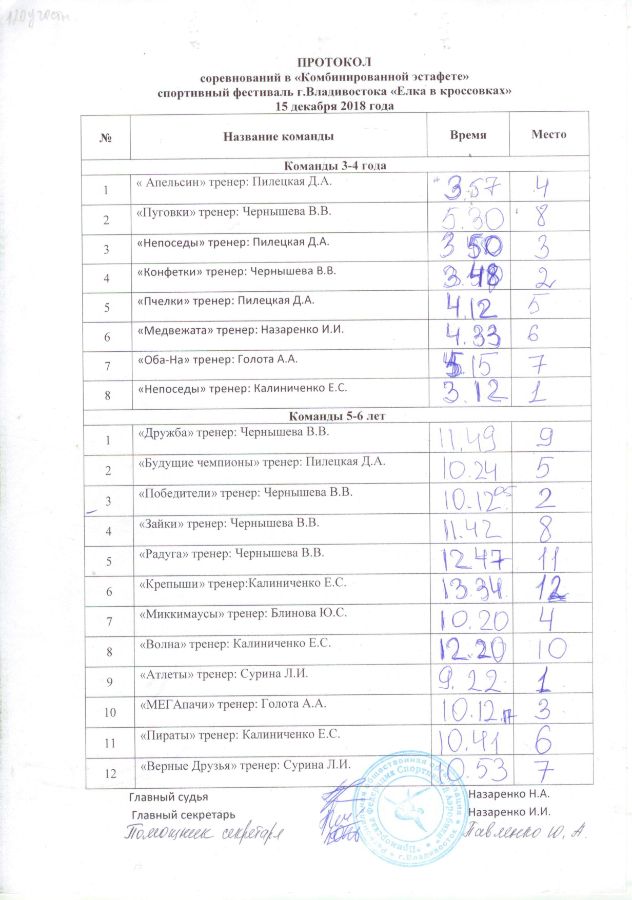 120 участн
ПРОТОКОЛ
соревнований в «Комбинированной эстафете»
спортивный фестиваль г.Владивостока «Елка в кроссовках»
15 декабря 2018 года
№ Название команды Время Место
Команды 3-4 года
1 « Апельсин» тренер: Пилецкая Д.А. 3.57 4
2 «Пуговки» тренер: Чернышева В.В. 5.30 8
3 «Непоседы» тренер: Пилецкая Д.А. 3 50 3
4 «Конфетки» тренер: Чернышева В.В. 3.48 2
5 «Пчелки» тренер: Пилецкая Д.А. 4.12 5
6 «Медвежата» тренер: Назаренко И.И. 4.33 6
7 «Оба-На» тренер: Голота А.А. 5 15 7
8 «Непоседы» тренер: Калиниченко Е.С. 3.12 1
Команды 5-6 лет
1 «Дружба» тренер: Чернышева В.В. 11.49 9
2 «Будущие чемпионы» тренер: Пилецкая Д.А. 10.24 5
3 «Победители» тренер: Чернышева В.В. 10.12 05 2
4 «Зайки» тренер: Чернышева В.В. 11.42 8
5 «Радуга» тренер: Чернышева В.В. 12 47 11
6 «Крепыши» тренер:Калиниченко Е.С. 13.34 12
7 «Миккимаусы» тренер: Блинова Ю.С. 10.20 4
8 «Волна» тренер: Калиниченко Е.С. 12.20 10
9 «Атлеты» тренер: Сурина Л.И. 9.22 1
10 «МЕГАпачи» тренер: Голота А.А. 10.12.17 3
11 «Пираты» тренер: Калиниченко Е.С. 10.41 6
12 «Верные Друзья» тренер: Сурина Л.И. 10.53 7
Главный судья Назаренко Н.А.
Главный секретарь Назаренко И.И.
Помошник секретаря Павленко Ю. А.
общественная
Федерация Спортивной
г.Владивосток